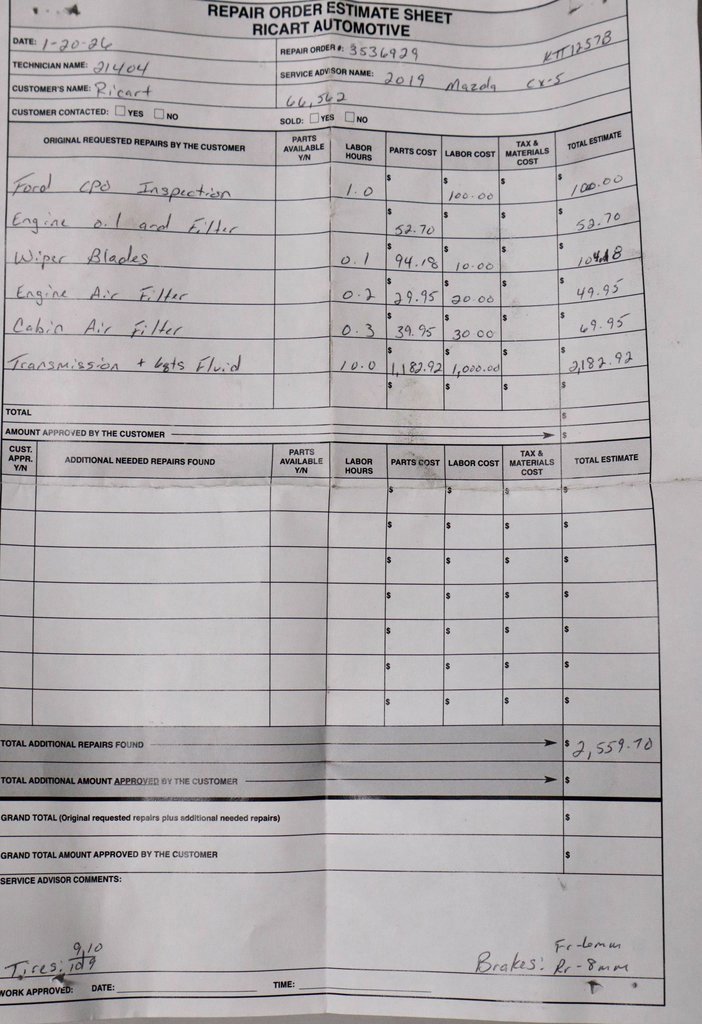 REPAIR ORDER ESTIMATE SHEET
RICART AUTOMOTIVE
DATE: 1-20-26 REPAIR ORDER #: 3536929 KTT1257B
TECHNICIAN NAME: 21404 SERVICE ADVISOR NAME: 2019 Mazda CX-5
CUSTOMER'S NAME: Ricart 66,562
CUSTOMER CONTACTED: YES NO SOLD: YES NO
ORIGINAL REQUESTED REPAIRS BY THE CUSTOMER PARTS AVAILABLE Y/N LABOR HOURS PARTS COST LABOR COST TAX & MATERIALS COST TOTAL ESTIMATE
Ford CPO Inspection 1.0 $ $ 100.00 $ $ 100.00
Engine oil and Filter $ 52.70 $ $ $ 52.70
Wiper Blades 0.1 $ 94.18 $ 10.00 $ $ 104.18
Engine Air Filter 0.2 $ 29.95 $ 20.00 $ $ 49.95
Cabin Air Filter 0.3 $ 39.95 $ 30.00 $ $ 69.95
Transmission + Fluid 10.0 $ 1,182.92 $ 1,000.00 $ $ 2,182.92
$ $ $ $
TOTAL $
AMOUNT APPROVED BY THE CUSTOMER $
CUST. APPR. Y/N ADDITIONAL NEEDED REPAIRS FOUND PARTS AVAILABLE Y/N LABOR HOURS PARTS COST LABOR COST TAX & MATERIALS COST TOTAL ESTIMATE
$ $ $ $
$ $ $ $
$ $ $ $
$ $ $ $
$ $ $ $
$ $ $ $
$ $ $ $
TOTAL ADDITIONAL REPAIRS FOUND $ 2,559.70
TOTAL ADDITIONAL AMOUNT APPROVED BY THE CUSTOMER $
GRAND TOTAL (Original requested repairs plus additional needed repairs) $
GRAND TOTAL AMOUNT APPROVED BY THE CUSTOMER $
SERVICE ADVISOR COMMENTS:
9 10 Fr-6mm
Tires: 10 9 Brakes: Rr-8mm
WORK APPROVED: DATE: TIME: